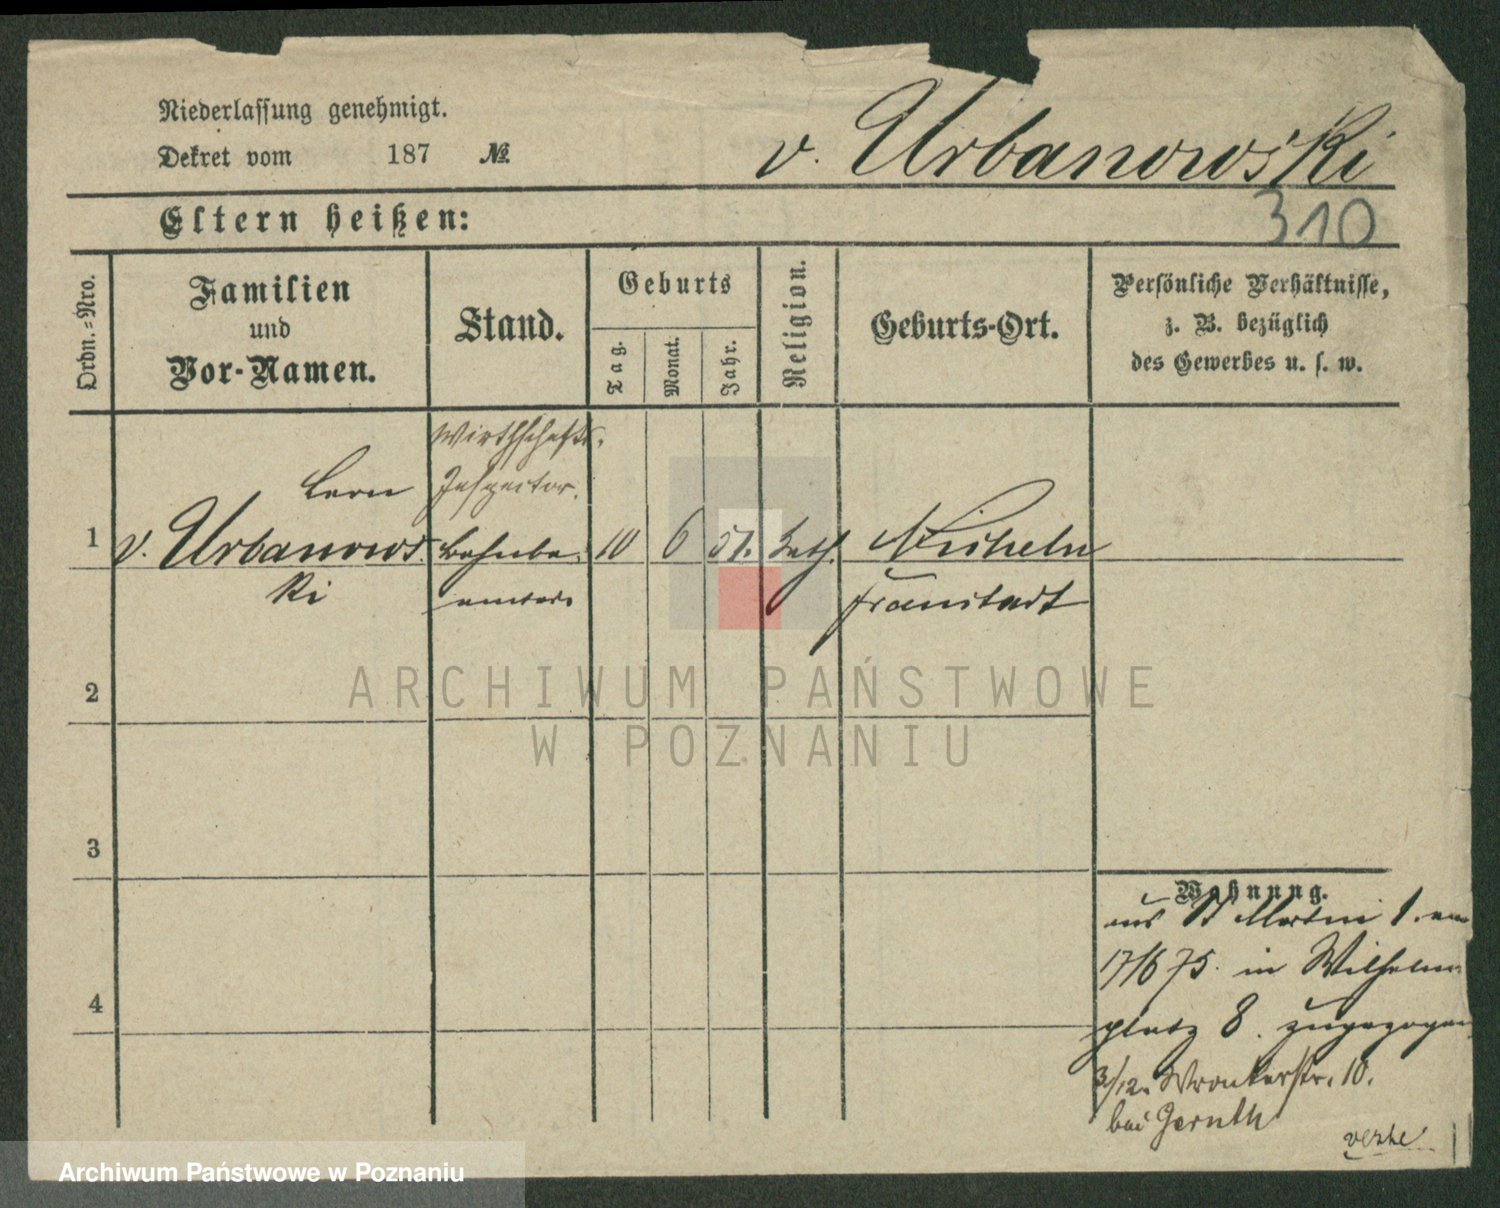 Niederlassung genehmigt.
Dekret vom 187 №
v. Urbanowski
Eltern heißen:
310
Ordn.=Nro.
Familien
und
Vor-Namen.
Stand.
Geburts
Tag.
Monat.
Jahr.
Religion.
Geburts-Ort.
Persönliche Verhältnisse,
z. B. bezüglich
des Gewerbes u. s. w.
Wirthschafts.
Inspector.
1 v. Urbanows Bahnbe 10 6 51. kath.
ki amter
Fraustadt
2
3
4
Wohnung.
aus St Martin 1. am
17/6 75. in Wilhelms
platz 8. zugezogen
3/12. Wronkerstr. 10.
bei
verte
ARCHIWUM PAŃSTWOWE
W POZNANIU
Archiwum Państwowe w Poznaniu